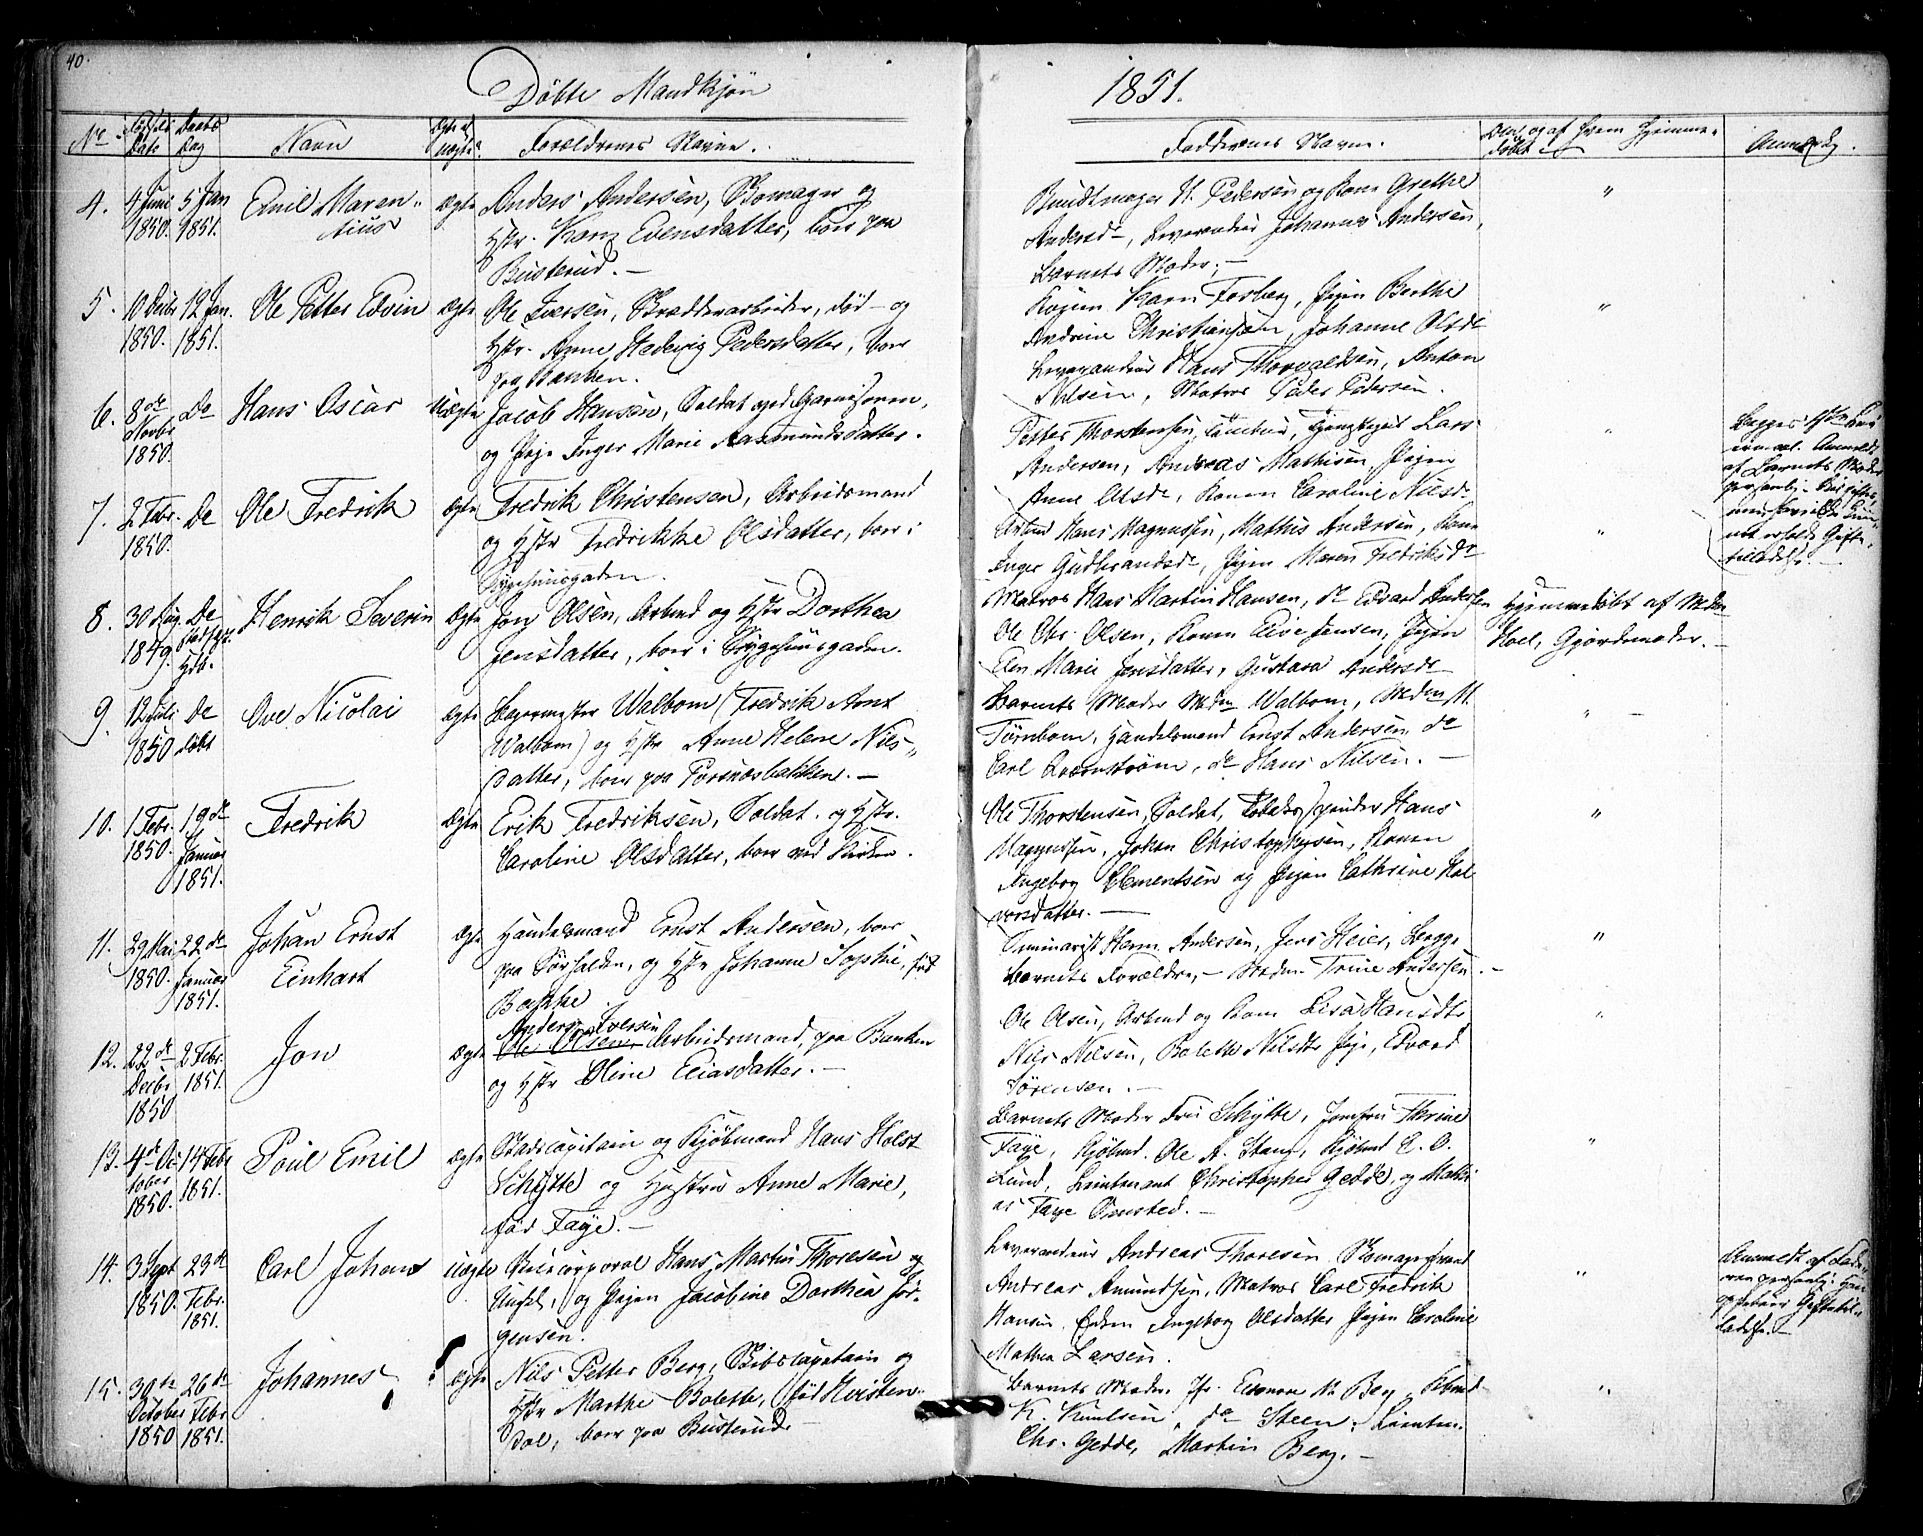 40.
Döbte Mandkjön
1851.
No. Födsels Date Daabs Dag Navn Ægte el. Uægte Forældrenes Navne. Faddernes Navne. Den, og af hvem hjemmedöbt Anmærk.
4. 4 Juni 1850. 5 Jan 1851. Emil Marenius Ægte
Anders Andersen, Skomager og
Hstr. Karn Evensdatter, boer paa
Busterud. —
Bundtmager H. Pedersen og Kone Grethe
Andersd., Leverandeur Johannes Andersen,
Barnets Moder. —
"
5. 10 Decbr 1850. 12 Jan. 1851. Ole Petter Edvin Ægte
Ole Iversen, Bræddearbeider, död — og
Hstr. Anne Hedevig Pedersdatter, boer
paa Banken.
Konen Karn Forberg, Pigen Berthe
Andrine Christiansen, Johanne Olsdr
Leverandeur Hans Thorvaldsen, Anton
Nilsen, Matros Peder Pedersen.
"
6. 8de Novbr 1850. Do Hans Oscar Uægte
Jacob Hansen, Soldat ved Garnisonen,
og Pige Inger Marie Rasmundsdatter.
Petter Thorstensen, Lars
Andersen, Andreas Mathisen, Pigen
Anne Olsdr, Konen Caroline Nilsdr
"
Begges 1ste
Anmeldt
af Barnets Moder
7. 2 Febr. 1850. Do Ole Fredrik Ægte
Fredrik Christensen, Arbeidsmand
og Hstr Fredrikke Olsdatter, boer i
Sygehuusgaden.
Arbmd Hans Magnussen, Mathis Andersen, Kone
Inger Gudbrandsdr, Pigen Maren Fredriksdr
"
8. 30 Aug. 1849. Do Henrik Severin Ægte
Jon Olsen, Arbmd og Hstr Dorthea
Jensdatter, boer i Sygehuusgaden.
Matros Hans Martin Hansen, do Edvard Andersen
Ole Chr. Olsen, Konen Elise Jensen, Pigen
Elen Marie Jensdatter, Gustava Andersdr
Hjemmedöbt af Mdm
Hoel, Gjordemoder. —
9. 12 Juli 1850 Do döbt Ove Nicolai Ægte
Bagermester Walbom (Fredrik Arnt
Walbom) og Hstr Anne Helene Nils-
datter, boer paa Porsnæsbakken. —
Barnets Moder Mdm Walbom, Mdm M.
Törnbom, Handelsmand Ernst Andersen, do
Carl Qvarnström, do Hans Nilsen. —
" —
10. 1 Febr. 1850. 19de Januar 1851. Fredrik Ægte
Erik Fredriksen, Soldat og Hstr.
Caroline Olsdatter, boer ved Kirken.
Ole Thorstensen, Soldat, Tobaksspinder Hans
Magnussen, Johan Christophersen, Konen
Ingeborg Clementsen og Pigen Cathrine Hal-
vorsdatter. —
"
11. 29 Mai 1850. 22de Januar 1851. Johan Ernst Einhart Ægte
Handelsmand Ernst Andersen, boer
paa Sörhalden, og Hstr Johanne Sophie, föd
Bakke.
Seminarist Herm. Andersen, Jens Heier, Begge
Barnets Forældre, — Mdm Trine Andersen. —
"
12. 22de Decbr 1850 2 Febr. 1851. Jon Ægte
Anders Iversen
Ole Olsen, Arbeidsmand, paa Banken
og Hstr Oline Eliasdatter. —
Ole Olsen, Arbmd og Kone Lisa Hansdtr
Nils Nilsen, Bolette Nilsdtr Pige, Edvard
Sörensen. —
"
13. 4de October 1850. 14 Febr 1851. Poul Emil Ægte
Stadscapitain og Kjöbmand Hans Holst
Schytte og Hustru Anne Marie,
föd Faye. —
Barnets Moder Fru Schytte, Jomfru Thrine
Faye, Kjöbmd. Ole A. Stang, Kjöbmd C. O.
Lund, Lieutenant Christopher Gedde, og Mathi-
as Faye Omsted. —
"
14. 3 Sept 1850. 23de Febr. 1851. Carl Johan Uægte
Hans Martin Thoresen og
Ungk., og Pigen Jacobine Dorthea Jör-
gensen.
Leverandeur Andreas Thoresen Skomagersvend
Andreas Amundsen, Matros Carl Fredrik
Hansen. Enken Ingeborg Olsdatter Pigen Caroline
Mathea Larsen.
"
Anmeldt af Fade-
ren personlig.
15. 30te October 1850 26de Febr 1851. Johannes Ægte
Nils Petter Berg, Skibscapitain og
Hstr Marthe Bolette, föd Kvisten-
dal, boer paa Busterud. —
Barnets Moder, Jfr. Elenora M. Berg, Kjbmd
K. Knutsen, do Steen, Lieuten.
Chr. Gedde, Martin Berg. —
"